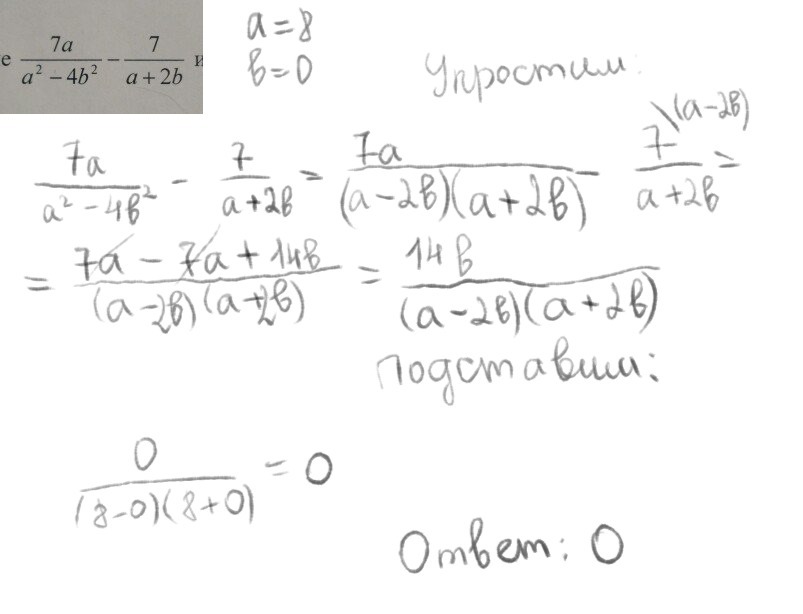 е 7a / (a² − 4b²) − 7 / (a + 2b) и
a = 8
b = 0
Упростим:
7a / (a² − 4b²) − 7 / (a + 2b) = 7a / ((a − 2b)(a + 2b)) − 7\(a − 2b) / (a + 2b) =
= (7a − 7a + 14b) / ((a − 2b)(a + 2b)) = 14b / ((a − 2b)(a + 2b))
подставим:
0 / ((8 − 0)(8 + 0)) = 0
Ответ: 0